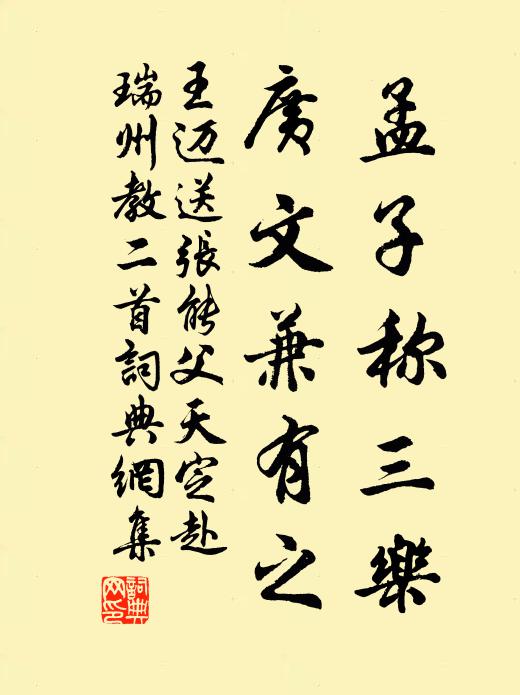 孟子称三樂
廣文兼有之
王迈送張能父天定赴
瑞州教二首詞典網集
詞典網印